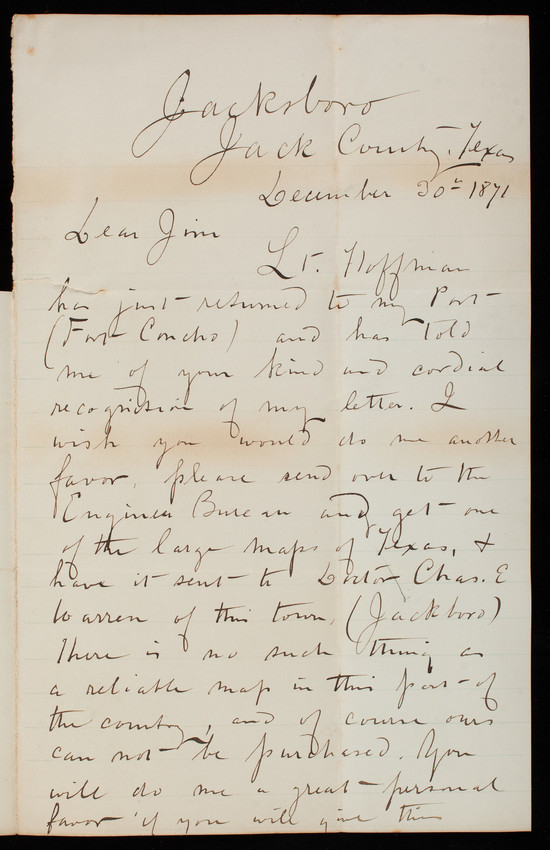 Jacksboro
Jack County, Texas
December 30th 1871
Dear Jim
Lt. Hoffman
has just returned to my Post
(Fort Concho) and has told
me of your kind and cordial
recognition of my letter. I
wish you would do me another
favor, please send over to the
Engineer Bureau and get one
of the large maps of Texas, &
have it sent to Doctor Chas. E
Warren of this town, (Jacksboro)
There is no such thing as
a reliable map in this part of
the country, and of course ours
can not be purchased. You
will do me a great personal
favor if you will give this